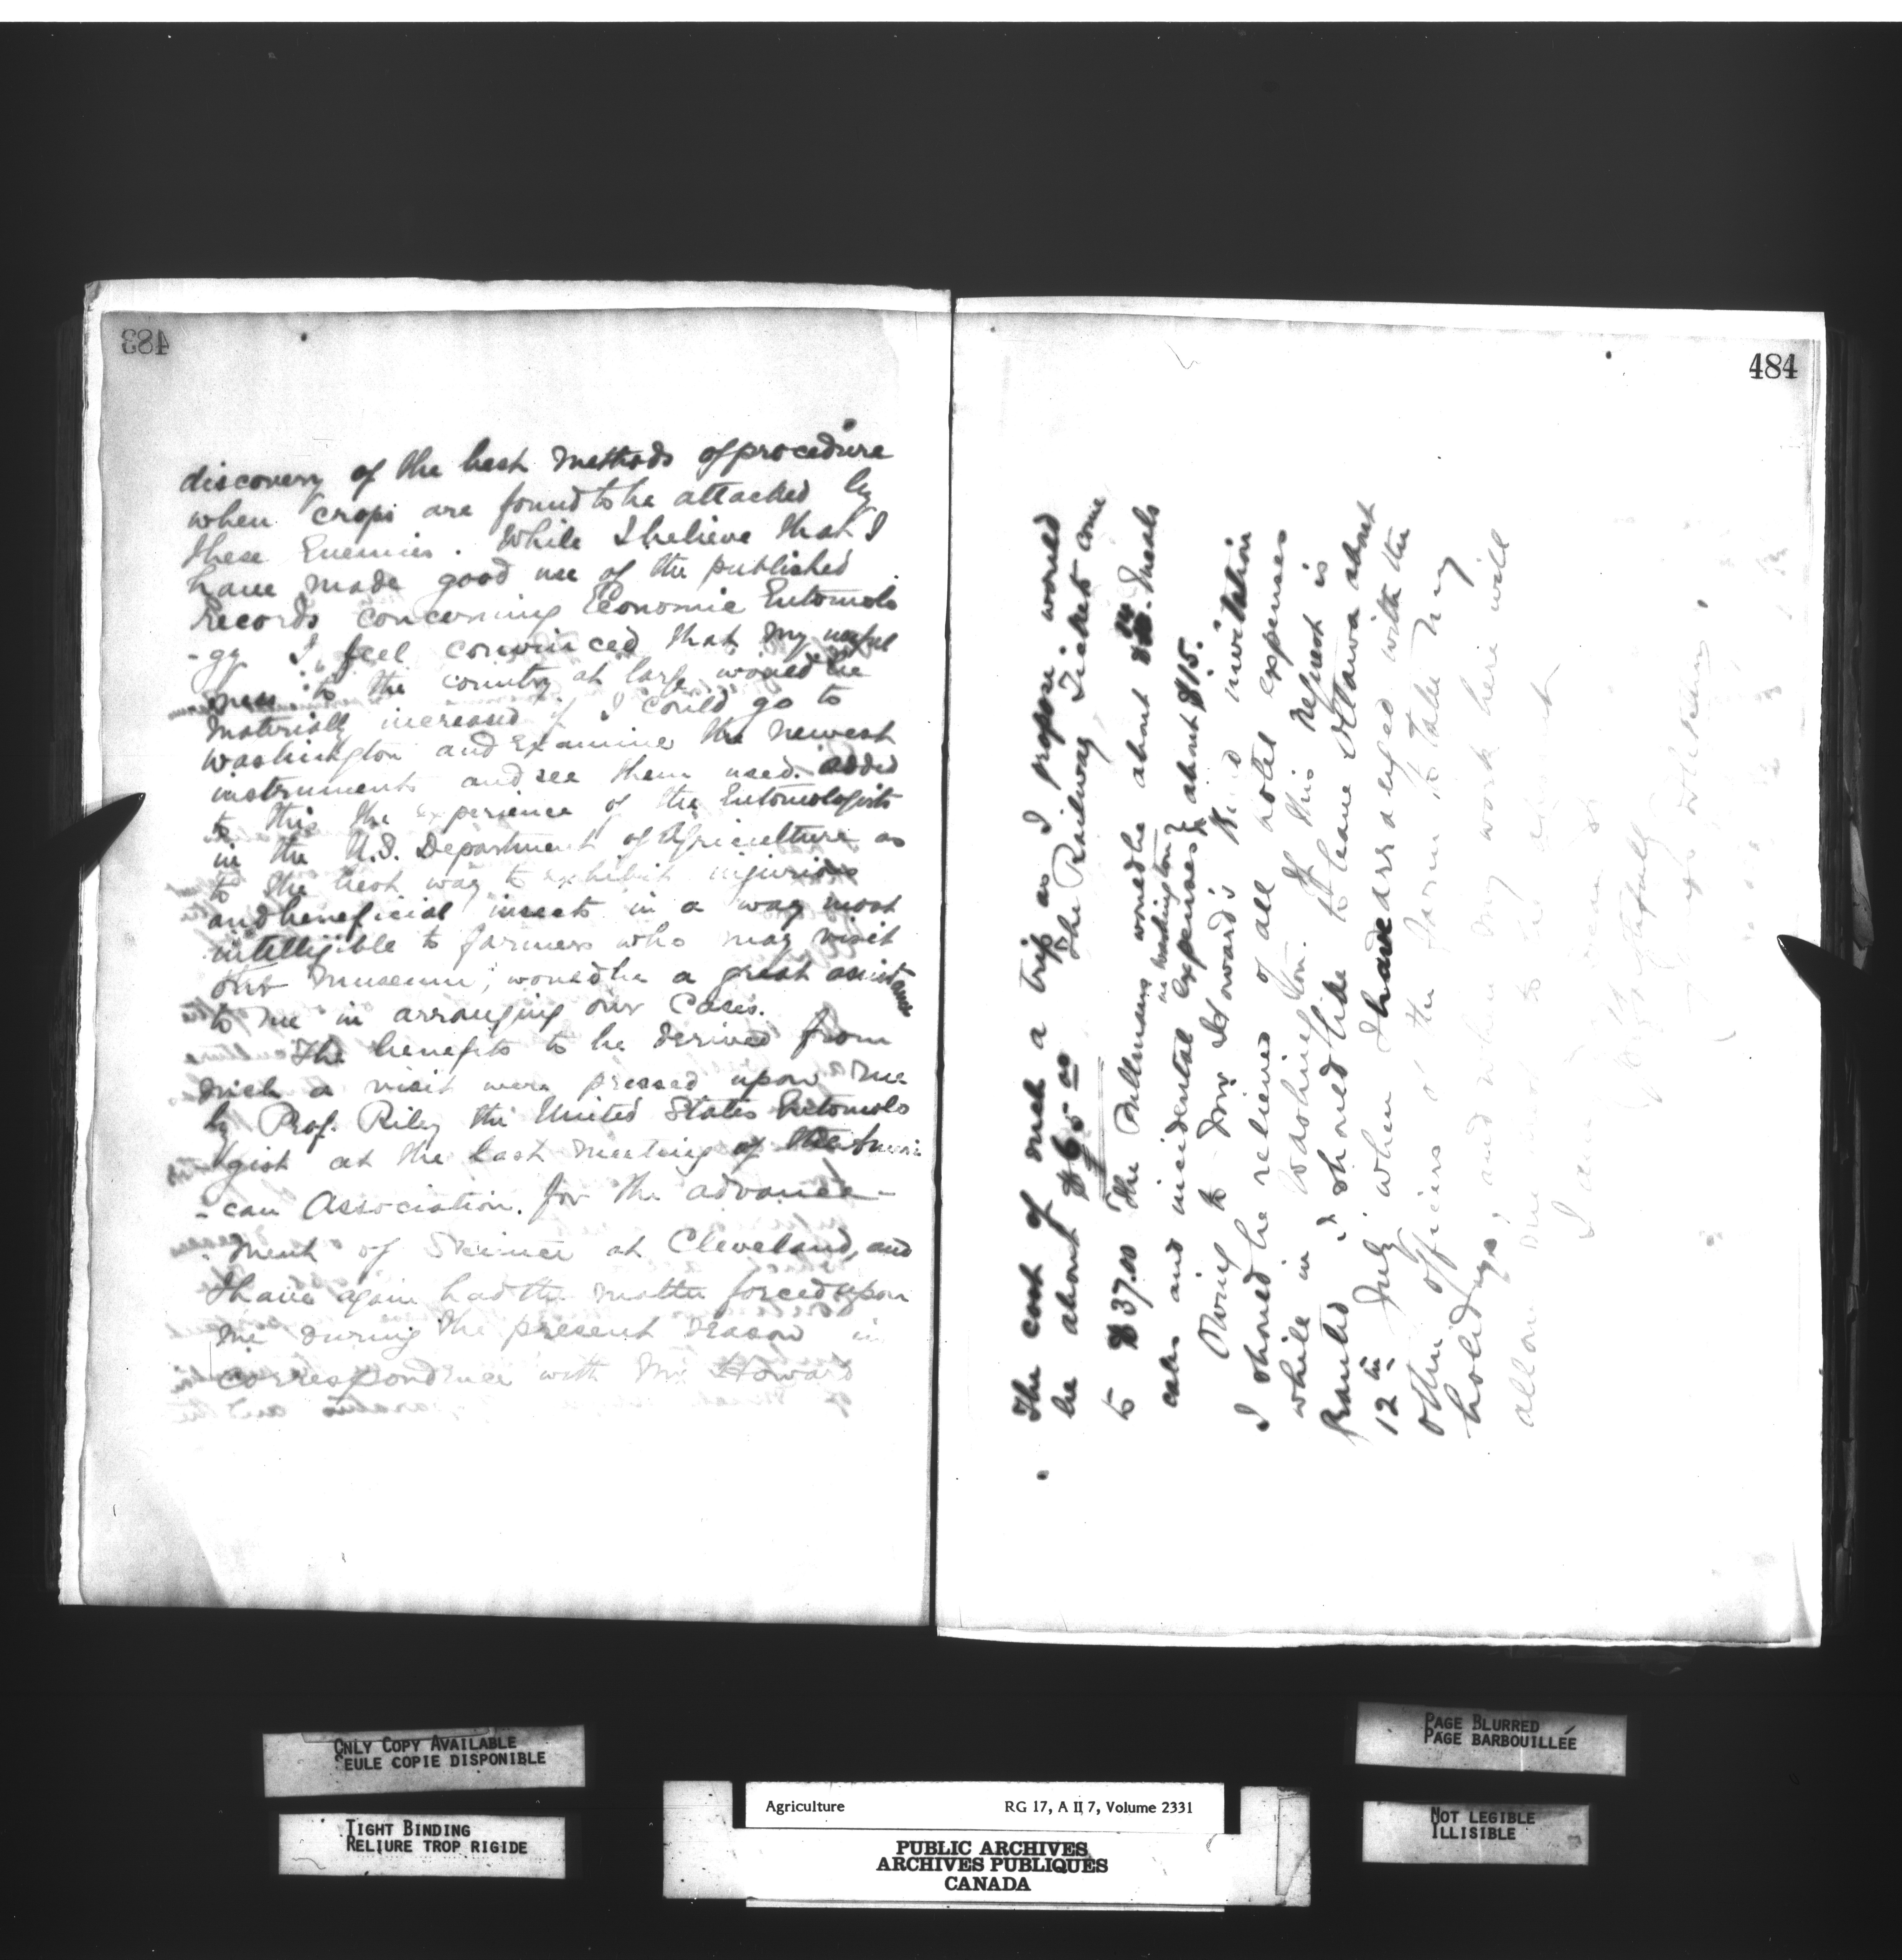 483
discovery of the best methods of procedure
when crops are found to be attacked by
these Enemies. While I believe that I
have made good use of the published
records concerning Economic Entomolo
-gy I feel convinced that my useful
ness to the country at large would be
materially increased if I could go to
Washington and Examine the newest
instruments and see them used. Added
to this the experience of the Entomologists
in the U.S. Department of Agriculture as
to the best way to exhibit injurious
and beneficial insects in a way most
intelligible to farmers who may visit
our Museum, would be a great assistance
to me in arranging our Cases.
The benefits to be derived from
such a visit were pressed upon me
by Prof. Riley the United States Entomolo
gist at the last meeting of the Ameri
-can Association for the advance-
ment of Science at Cleveland, and
I have again had the matter forced upon
me during the present season in
correspondence with Mr Howard
484
The cost of such a trip as I propose would
be about $65 00 The Railway Ticket come
to $37.00 The Pullmans would be about Meals
cabs and incidental Expenses in Washington } about $15.
Owing to Mr Howard's Kind invitation
I should be relieved of all hotel expenses
while in Washington. If this request is
granted I should like to leave Ottawa about
12th July when I have arranged with the
other officers of the farm to take my
holidays, and when my work here will
allow me to
I am
respectfully
ONLY COPY AVAILABLE
SEULE COPIE DISPONIBLE
TIGHT BINDING
RELIURE TROP RIGIDE
Agriculture RG 17, A II 7, Volume 2331
PUBLIC ARCHIVES
ARCHIVES PUBLIQUES
CANADA
PAGE BLURRED
PAGE BARBOUILLÉE
NOT LEGIBLE
ILLISIBLE